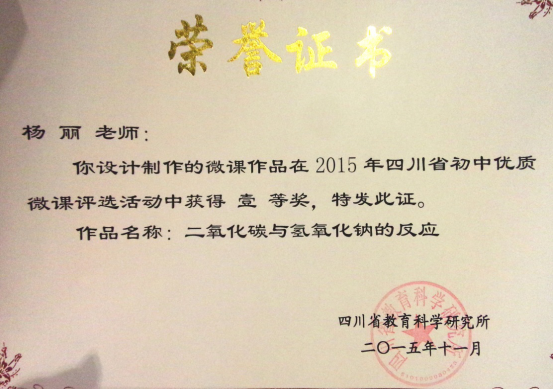 荣誉证书
杨 丽 老师:
你设计制作的微课作品在 2015 年四川省初中优质
微课评选活动中获得 壹 等奖,特发此证。
作品名称:二氧化碳与氢氧化钠的反应
四川省教育科学研究所
二〇一五年十一月